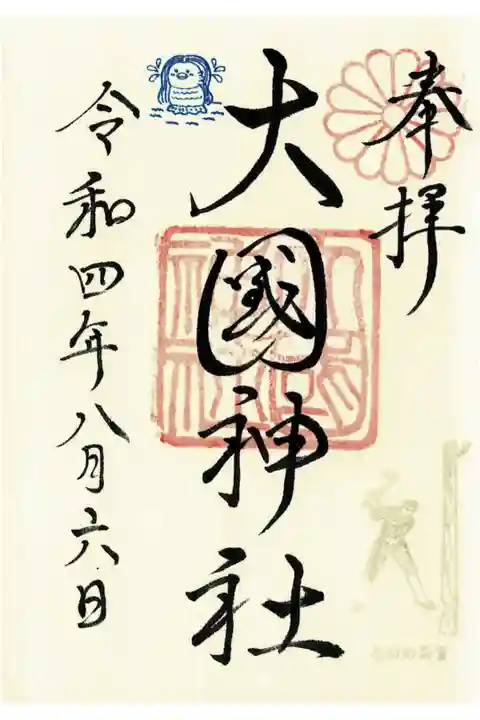 奉拝
大國神社
令和四年八月六日